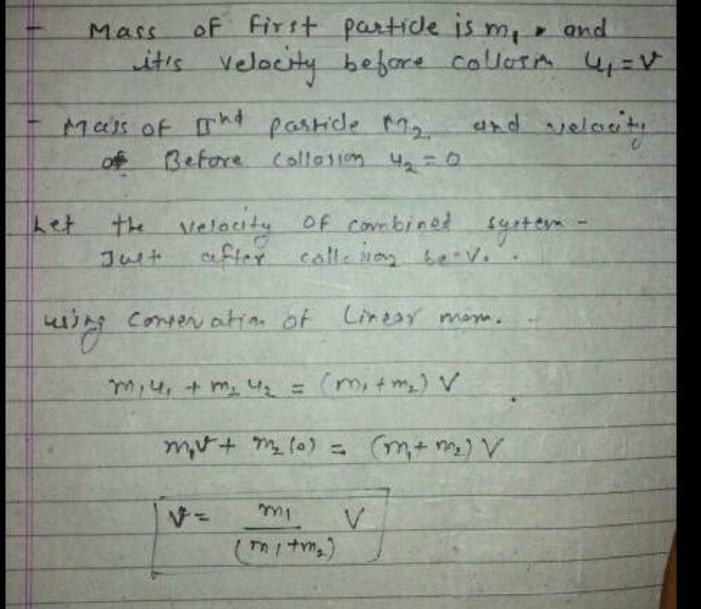 - Mass of first particle is m₁ and
it's velocity before collosin u₁ = v
- Mass of IInd particle m₂ and velocity
of Before collosion u₂ = 0
Let the velocity of combined system -
Just after be V.
using conservation of Linear mom.
m₁u₁ + m₂u₂ = (m₁+m₂) V
m₁v + m₂(0) = (m₁+m₂) V
v = m₁/(m₁+m₂) V